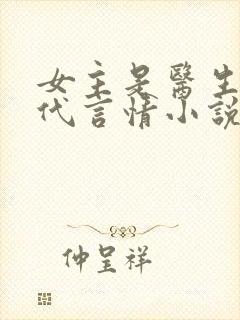 女主是醫生
代言情小說
仲呈祥